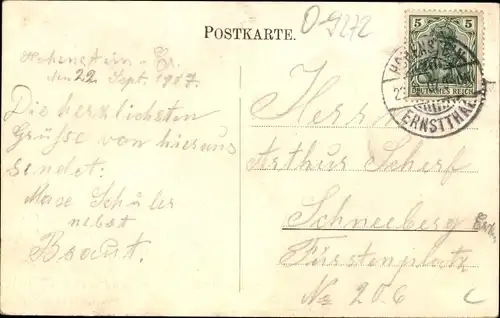 O-9272
POSTKARTE.
5 5
DEUTSCHES REICH
HOHENSTEIN
ERNSTTHAL
Hohenstein-Er.
den 22. Sept. 1907.
Die herzlichsten
Grüsse von hieraus
sendet:
Max Schüler
nebst
Braut.
Herrn
Arthur Scherf
Schneeberg Erzb.
Fürstenplatz
No 206
c